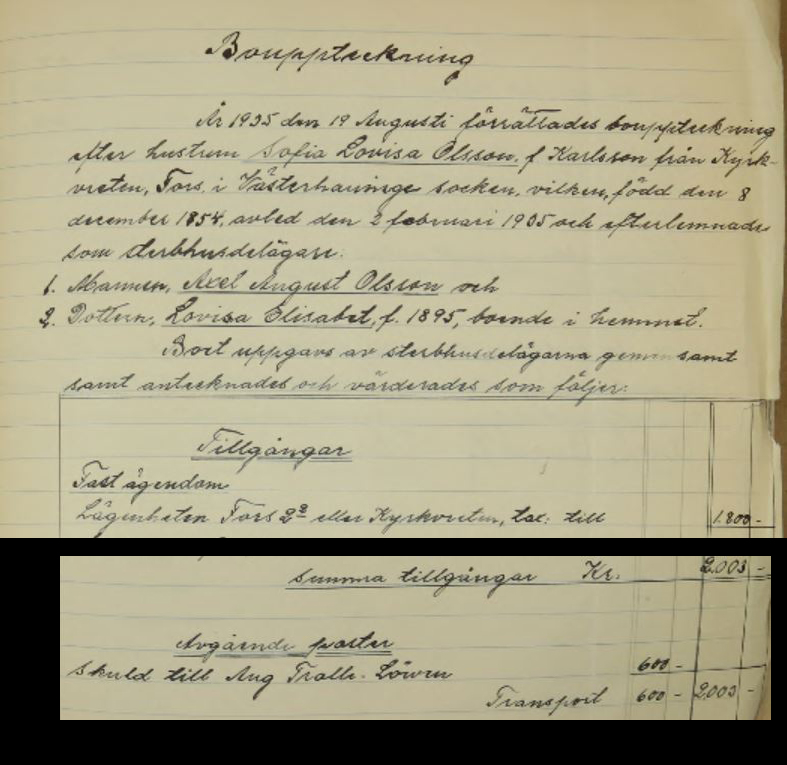 Bouppteckning
År 1935 den 19 Augusti förrättades bouppteckning
efter hustrun Sofia Lovisa Olsson, f. Karlsson från Kyrk-
vreten, Fors, i Västerhaninge socken, vilken, född den 8
december 1854, avled den 2 februari 1935 och efterlemnade
som sterbhusdelägare:
1. Mannen, Axel August Olsson och
2. Dottern, Lovisa Elisabet, f. 1895, boende i hemmet.
Boet uppgavs av sterbhusdelägarna gemensamt
samt antecknades och värderades som följer:
Tillgångar
Fast ägendom
Lägenheten Fors 2 eller Kyrkvreten, tax: till 1.800 -
Summa tillgångar Kr. 2.003 -
Avgående poster
Skuld till Aug Löwen 600 -
Transport 600 - 2.003 -